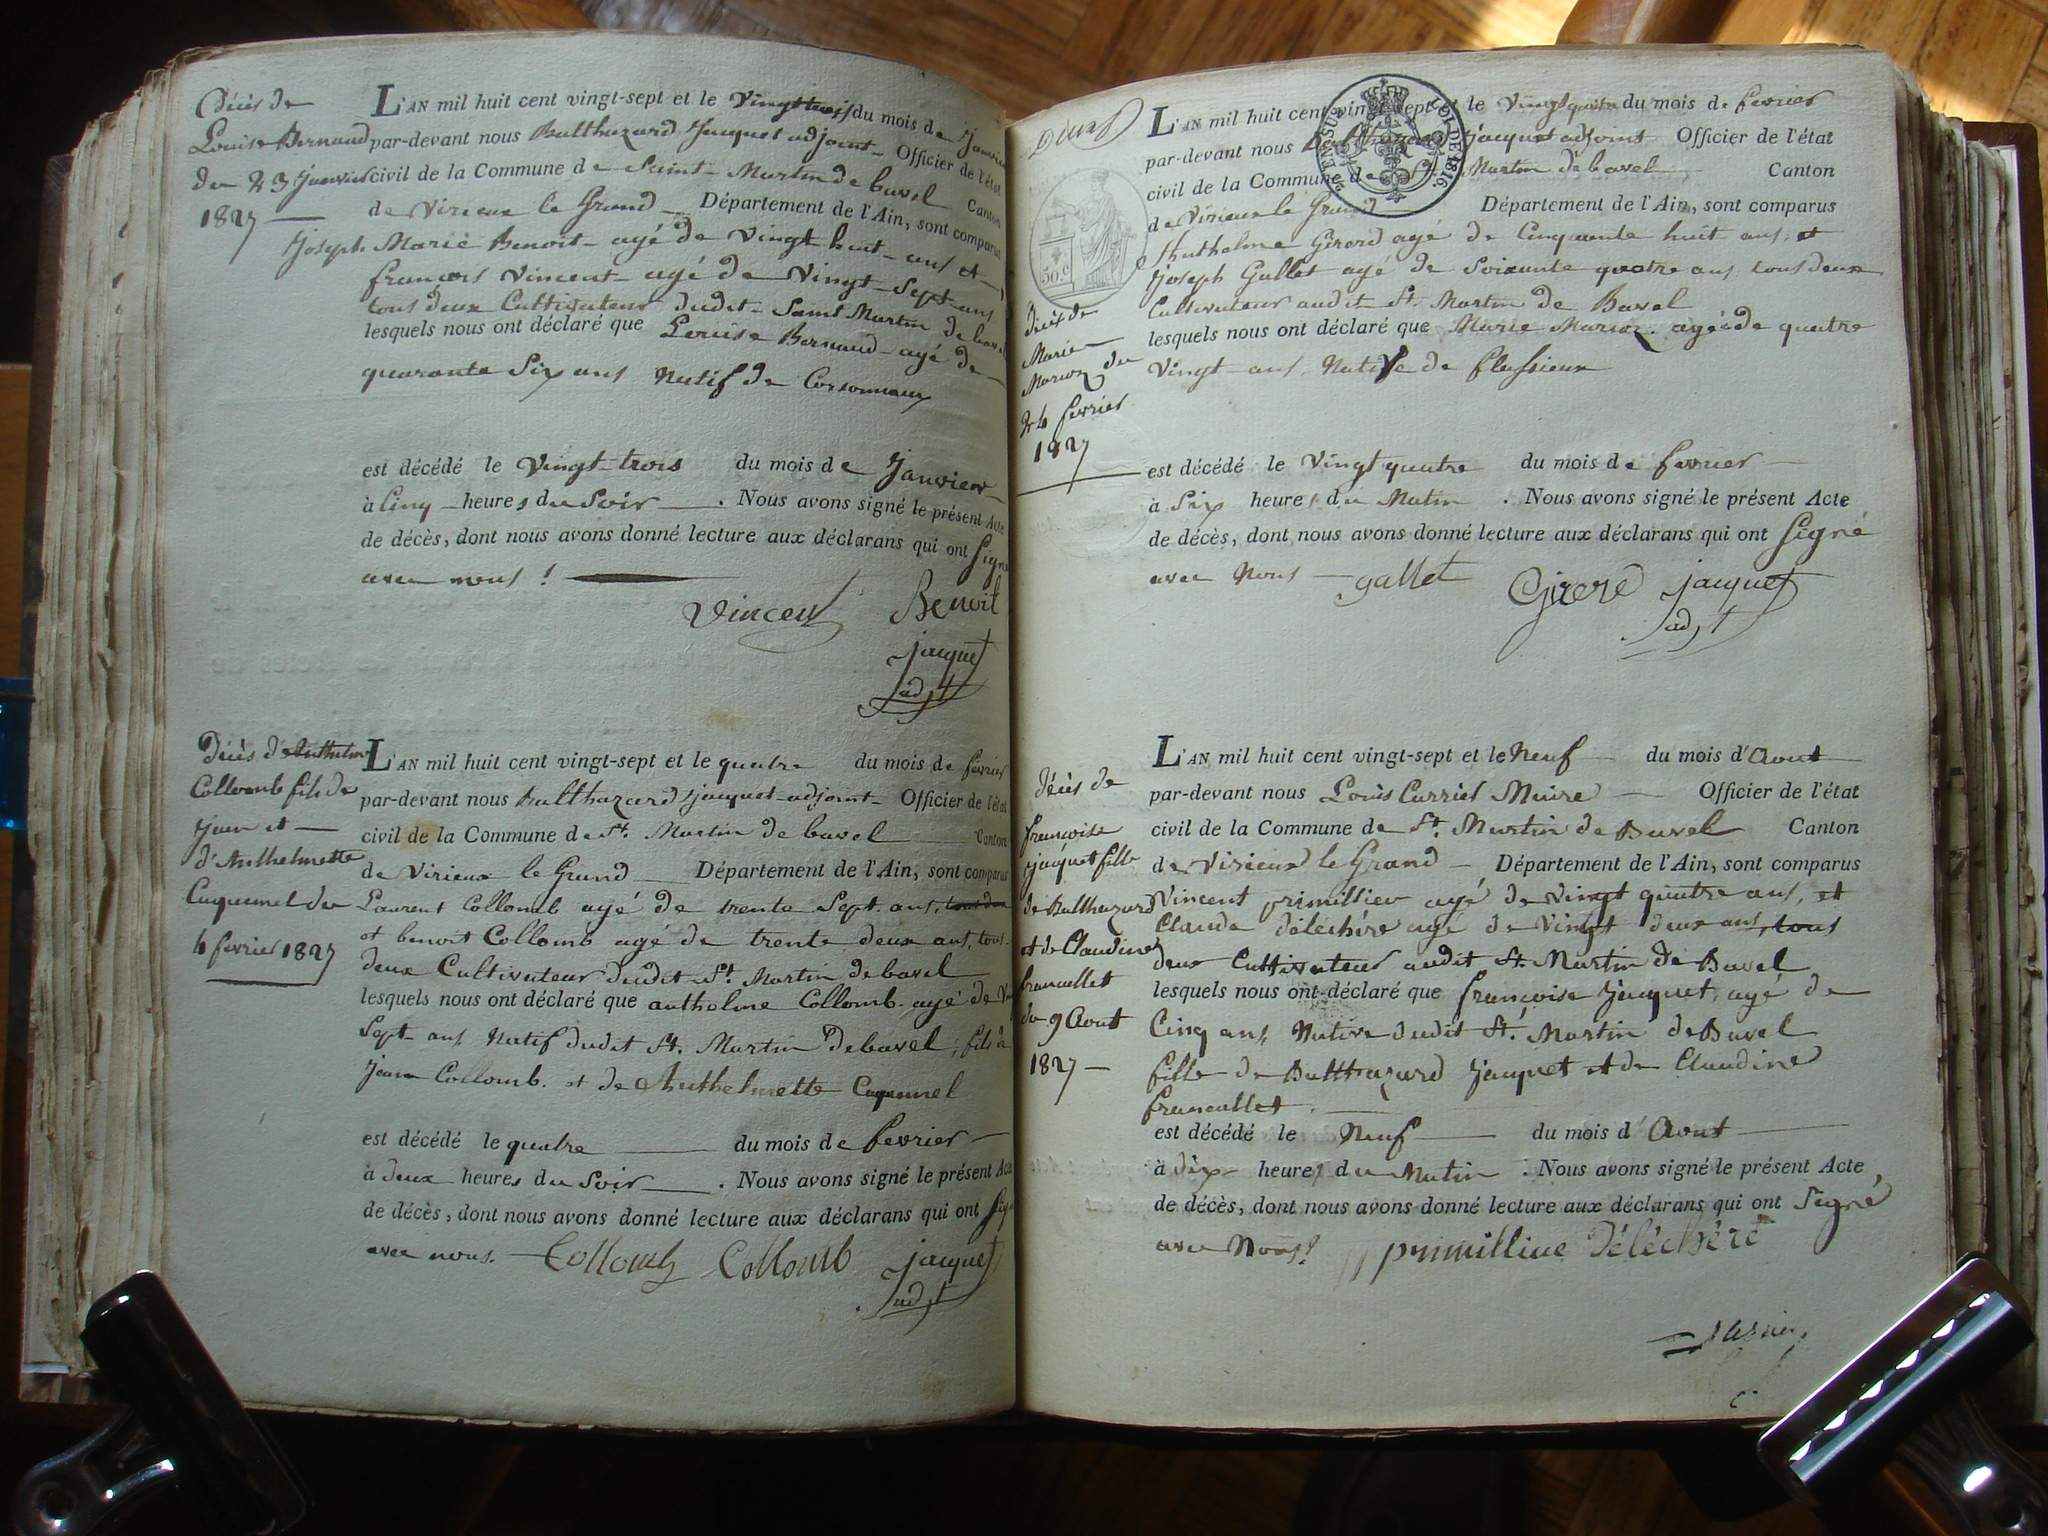 Décès de
Louise Bernaud
du 23 Janvier
1827
L'AN mil huit cent vingt-sept et le Vingt trois du mois de Janvier
par-devant nous Balthazard Jacquet adjoint Officier de l'état
civil de la Commune de Saint-Martin de bavel Canton
de Virieux le Grand Département de l'Ain, sont comparus
Joseph Marie Benoit agé de vingt huit ans et
françois Vincent agé de Vingt Sept ans
tous deux Cultivateur dudit Saint Martin de bavel
lesquels nous ont déclaré que Louise Bernaud agé de
quarante Six ans Natif de
est décédé le Vingt trois du mois de Janvier
à Cinq heures du Soir. Nous avons signé le présent Acte
de décès, dont nous avons donné lecture aux déclarans qui ont Signé
avec nous !
Vincent Benoit
jacquet
adjt
Décès d'Anthelme
Collomb fils de
Jean et
d'Anthelmette
Cuquemel du
4 fevrier 1827
L'AN mil huit cent vingt-sept et le quatre du mois de fevrier
par-devant nous Balthazard Jacquet adjoint Officier de l'état
civil de la Commune de St. Martin de bavel Canton
de Virieux le Grand Département de l'Ain, sont comparus
Laurent Collomb agé de trente Sept ans, tous deux
et benoit Collomb agé de trente deux ans, tous
deux Cultivateur dudit St. Martin de bavel
lesquels nous ont déclaré que anthelme Collomb agé de
Sept ans Natif dudit St. Martin de bavel, fils de
Jean Collomb et de Anthelmette Cuquemel
est décédé le quatre du mois de fevrier
à deux heures du Soir. Nous avons signé le présent Acte
de décès, dont nous avons donné lecture aux déclarans qui ont Signé
avec nous. Collomb Collomb jacquet
adjt
50.c
SUS DE 1816
décès de
Marie
Marion du
24 fevrier
1827
L'AN mil huit cent vingt-sept et le Vingt quatre du mois de fevrier
par-devant nous Balthazard Jacquet adjoint Officier de l'état
civil de la Commune de St. Martin de bavel Canton
de Virieux le Grand Département de l'Ain, sont comparus
Anthelme Girord agé de Cinquante huit ans, et
Joseph Gallet agé de Soixante quatre ans tous deux
Cultivateur audit St. Martin de Bavel
lesquels nous ont déclaré que Marie Marion agée de quatre
Vingt ans, Native de
est décédé le Vingt quatre du mois de fevrier
à Six heures du Matin. Nous avons signé le présent Acte
de décès, dont nous avons donné lecture aux déclarans qui ont Signé
avec Nous gallet jacquet
adjt
décès de
françoise
jacquet fille
de Balthazard
et de Claudine
francallet
du 9 Aout
1827
L'AN mil huit cent vingt-sept et le Neuf du mois d'Aout
par-devant nous Louis Carrier Maire Officier de l'état
civil de la Commune de St. Martin de Bavel Canton
de Virieux le Grand Département de l'Ain, sont comparus
Vincent primillieu agé de Vingt quatre ans, et
Claude déléchère agé de Vingt deux ans, tous
deux Cultivateur audit St. Martin de Bavel
lesquels nous ont déclaré que françoise Jacquet, agé de
Cinq ans, Native dudit St. Martin de Bavel
fille de Balthazard Jacquet et de Claudine
francallet.
est décédé le Neuf du mois d'Aout
à dix heures du Matin. Nous avons signé le présent Acte
de décès, dont nous avons donné lecture aux déclarans qui ont Signé
avec Nous. primillieu Déléchère